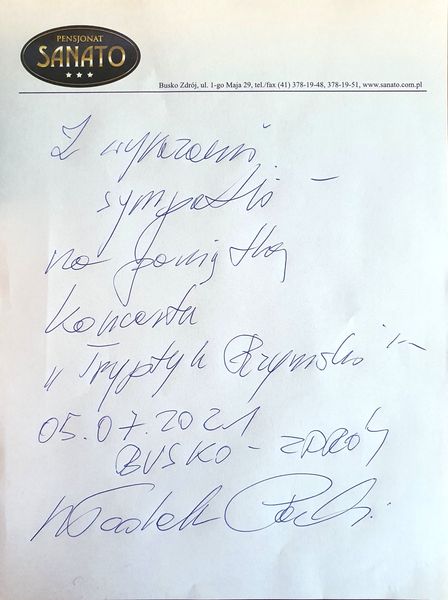 PENSJONAT
SANATO
Busko Zdrój, ul. 1-go Maja 29, tel./fax (41) 378-19-48, 378-19-51, www.sanato.com.pl
Z wyrazami
sympatii –
na pamiątkę
koncertu
"Tryptyk Rzymski" –
05.07.2021
BUSKO – ZDRÓJ